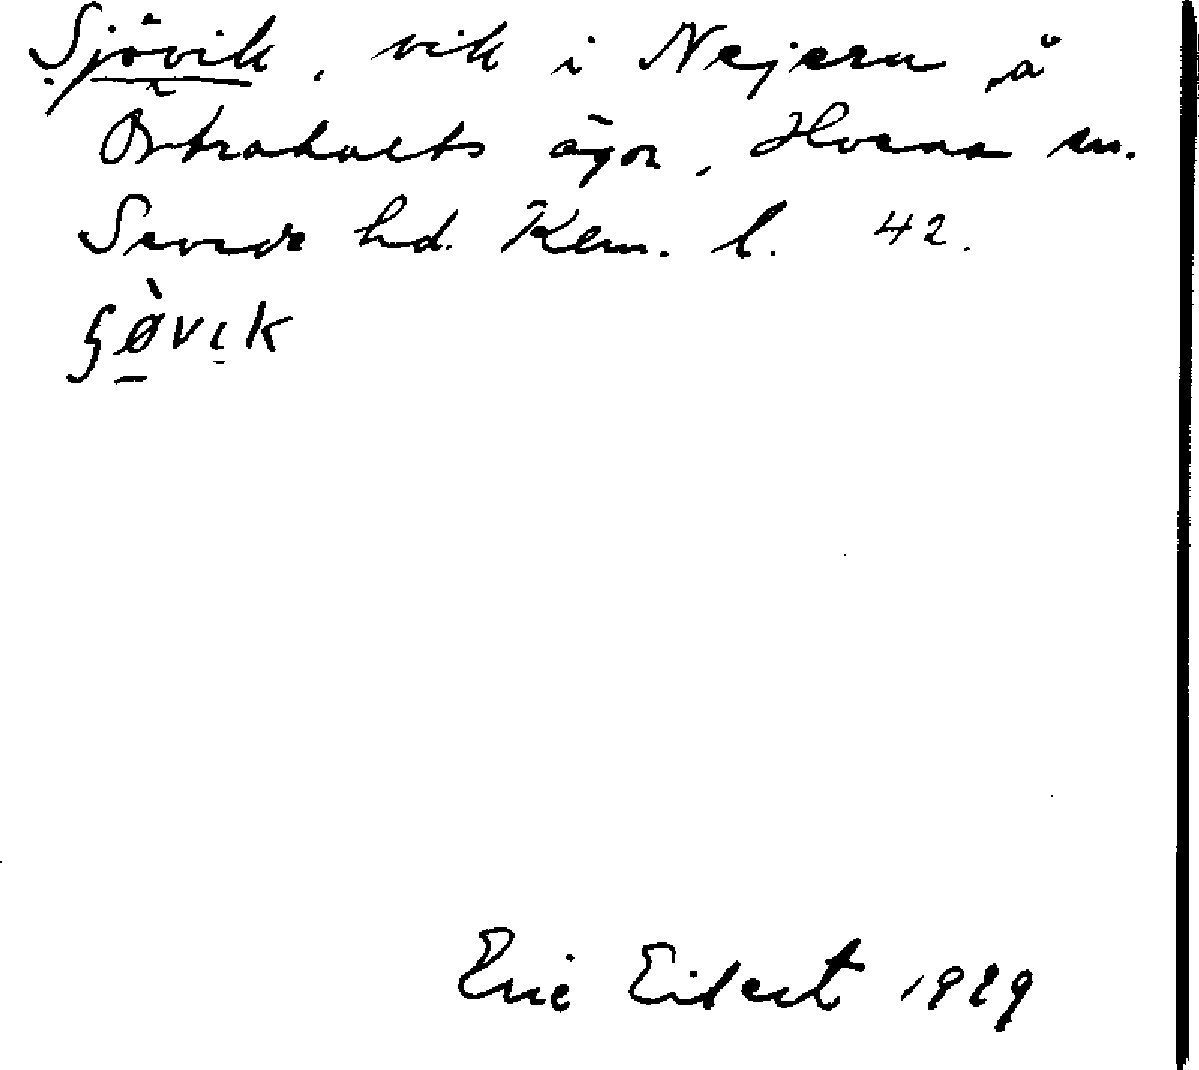 Sjövik, vik i Nejern å
Örtraholts ägor, Hvena sn.
Sevede hd. Klm. l. 42.
ʃø̀vik
Eric Eilert 1929